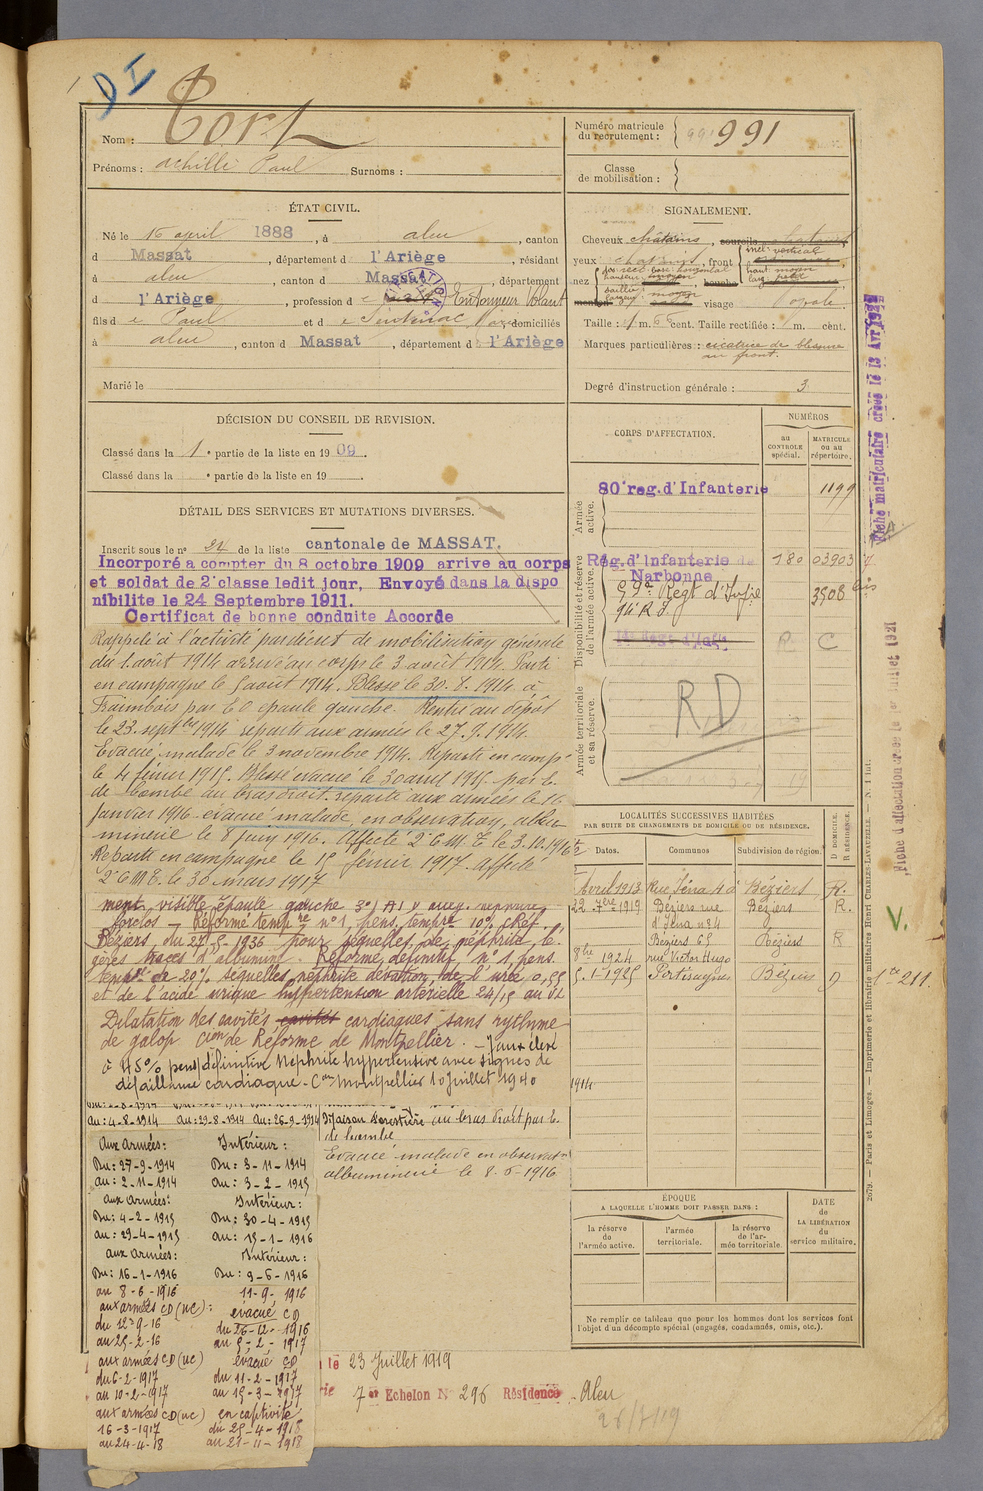 DI
Nom : Tort
Prénoms : achille Paul Surnoms :
Numéro matricule du recrutement : 991
Classe de mobilisation :
ÉTAT CIVIL.
Né le 16 april 1888, à aleu, canton
d Massat, département d l'Ariège, résidant
à aleu, canton d Massat, département
d l'Ariège, profession d Entonneur Volant
fils d e Paul et d e Sentenac domiciliés
à aleu, canton d Massat, département d l'Ariège
Marié le
SIGNALEMENT.
Cheveux châtains, sourcils châtains
yeux chatains, front incl. vertical haut. moyen larg.
nez dos rect. base horizontal hauteur moyen saillie largeur moyen
menton visage ovale
Taille : 1 m. 66 cent. Taille rectifiée : m. cent.
Marques particulières : cicatrice de blessure
au front.
Degré d'instruction générale : 3
DÉCISION DU CONSEIL DE REVISION.
Classé dans la 1e partie de la liste en 1909.
Classé dans la e partie de la liste en 19
DÉTAIL DES SERVICES ET MUTATIONS DIVERSES.
Inscrit sous le no 24 de la liste cantonale de MASSAT.
Incorporé a compter du 8 octobre 1909 arrive au corps
et soldat de 2e classe ledit jour, Envoyé dans la dispo
nibilite le 24 Septembre 1911.
Certificat de bonne conduite Accorde
Rappelé à l'activité par décret de mobilisation générale
du 1 août 1914 arrivé au corps le 3 août 1914. Parti
en campagne le 5 août 1914. Blessé le 30.8.1914 à
Fraimbois par E O épaule gauche. Rentré au dépôt
le 23 septbre 1914 reparti aux armées le 27.9.1914.
Evacué malade le 3 novembre 1914. Reparti en campe
le 4 février 1915. Blessé évacué le 30 avril 1915 par é.
de bombe au bras droit. reparti aux armées le 16
janvier 1916. évacué malade, en observation, albu-
minerie le 8 juin 1916. Affecté 2e C.M. E le 3.10.1916
Reparti en campagne le 15 février 1917 affecté
2e C ME. le 30 mars 1917
ment visible épaule gauche 3°)
forclos - Réformé tempre n° 1, pens. tempre 10% C Réf.
Béziers, du 27-5-1936 pour séquelles de néphrite, lé-
gères traces d'albumine. Réformé définitif n° 1 pens.
tempre de 20% séquelles néphrite élévation de l'urée 0,55
et de l'acide urique hypertension artérielle 24/15 au Vz
Dilatation des cavités cavités cardiaques sans rythme
de galop Cion de Réforme de Montpellier. - Taux élevé
à 45% pens définitive Néphrite hypertensive avec signes de
défaillance cardiaque - Con Montpellier 10 juillet 1940
au : 4-8-1914 au : 29-8-1914 au : 26-9-1914
Maison Forestière au bras droit par é.
de bombe
Evacué malade en observation
albuminerie le 8.6-1916
Aux Armées : Intérieur :
Du : 27-9-1914 Du : 3-11-1914
au : 2-11-1914 au : 3-2-1915
aux armées : Intérieur :
Du : 4-2-1915 Du : 30-4-1915
au : 29-4-1915 au : 15-1-1916
aux armées : Intérieur :
Du : 16-1-1916 Du : 9-6-1916
au 8-6-1916 11-9-1916
aux armées CD (UC) : évacué CD
du 12-9-16 du 26-12-1916
au 25-2-16 au 5-2-1917
aux armées CD (UC) évacué CD
du 6-2-1917 du 11-2-1917
au 10-2-1917 au 15-3-1917
aux armées CD (UC) en captivité
16-3-1917 du 25-4-1918
au 24-4-18 au 21-11-1918
le 23 Juillet 1919
7er Echelon N° 296 Résidence Aleu
26/7/19
CORPS D'AFFECTATION.
NUMÉROS
au CONTROLE spécial.
MATRICULE ou au répertoire.
Armée active.
80e reg. d'Infanterie 1199
Disponibilité et réserve de l'armée active.
Rég. d'Infanterie de Narbonne 180 03903
59e Regt d'Infie 3508 bis
R C
Armée territoriale et sa réserve.
RD
LOCALITÉS SUCCESSIVES HABITÉES
PAR SUITE DE CHANGEMENTS DE DOMICILE OU DE RÉSIDENCE.
Dates. Communes Subdivision de région. D DOMICILE. R RÉSIDENCE.
Avril 1913 Rue Iéna Béziers R.
22 7bre 1919 Béziers rue d'Iéna n° 4 Béziers R.
8bre 1924 Béziers 65 rue Victor Hugo Béziers R
5-1-1925 Pertisaques Béziers D
1914
211.
V.
ÉPOQUE
A LAQUELLE L'HOMME DOIT PASSER DANS :
la réserve de l'armée active.
l'armée territoriale.
la réserve de l'armée territoriale.
DATE de LA LIBÉRATION du service militaire.
Ne remplir ce tableau que pour les hommes dont les services font
l'objet d'un décompte spécial (engagés, condamnés, omis, etc.).
Fiche matriculaire créée le 13 Avr 1921
Fiche d'affectation créée le 1er Juillet 1921
2079. — Paris et Limoges. — Imprimerie et librairie militaires Henri CHARLES-LAVAUZELLE. — N. 1 int.